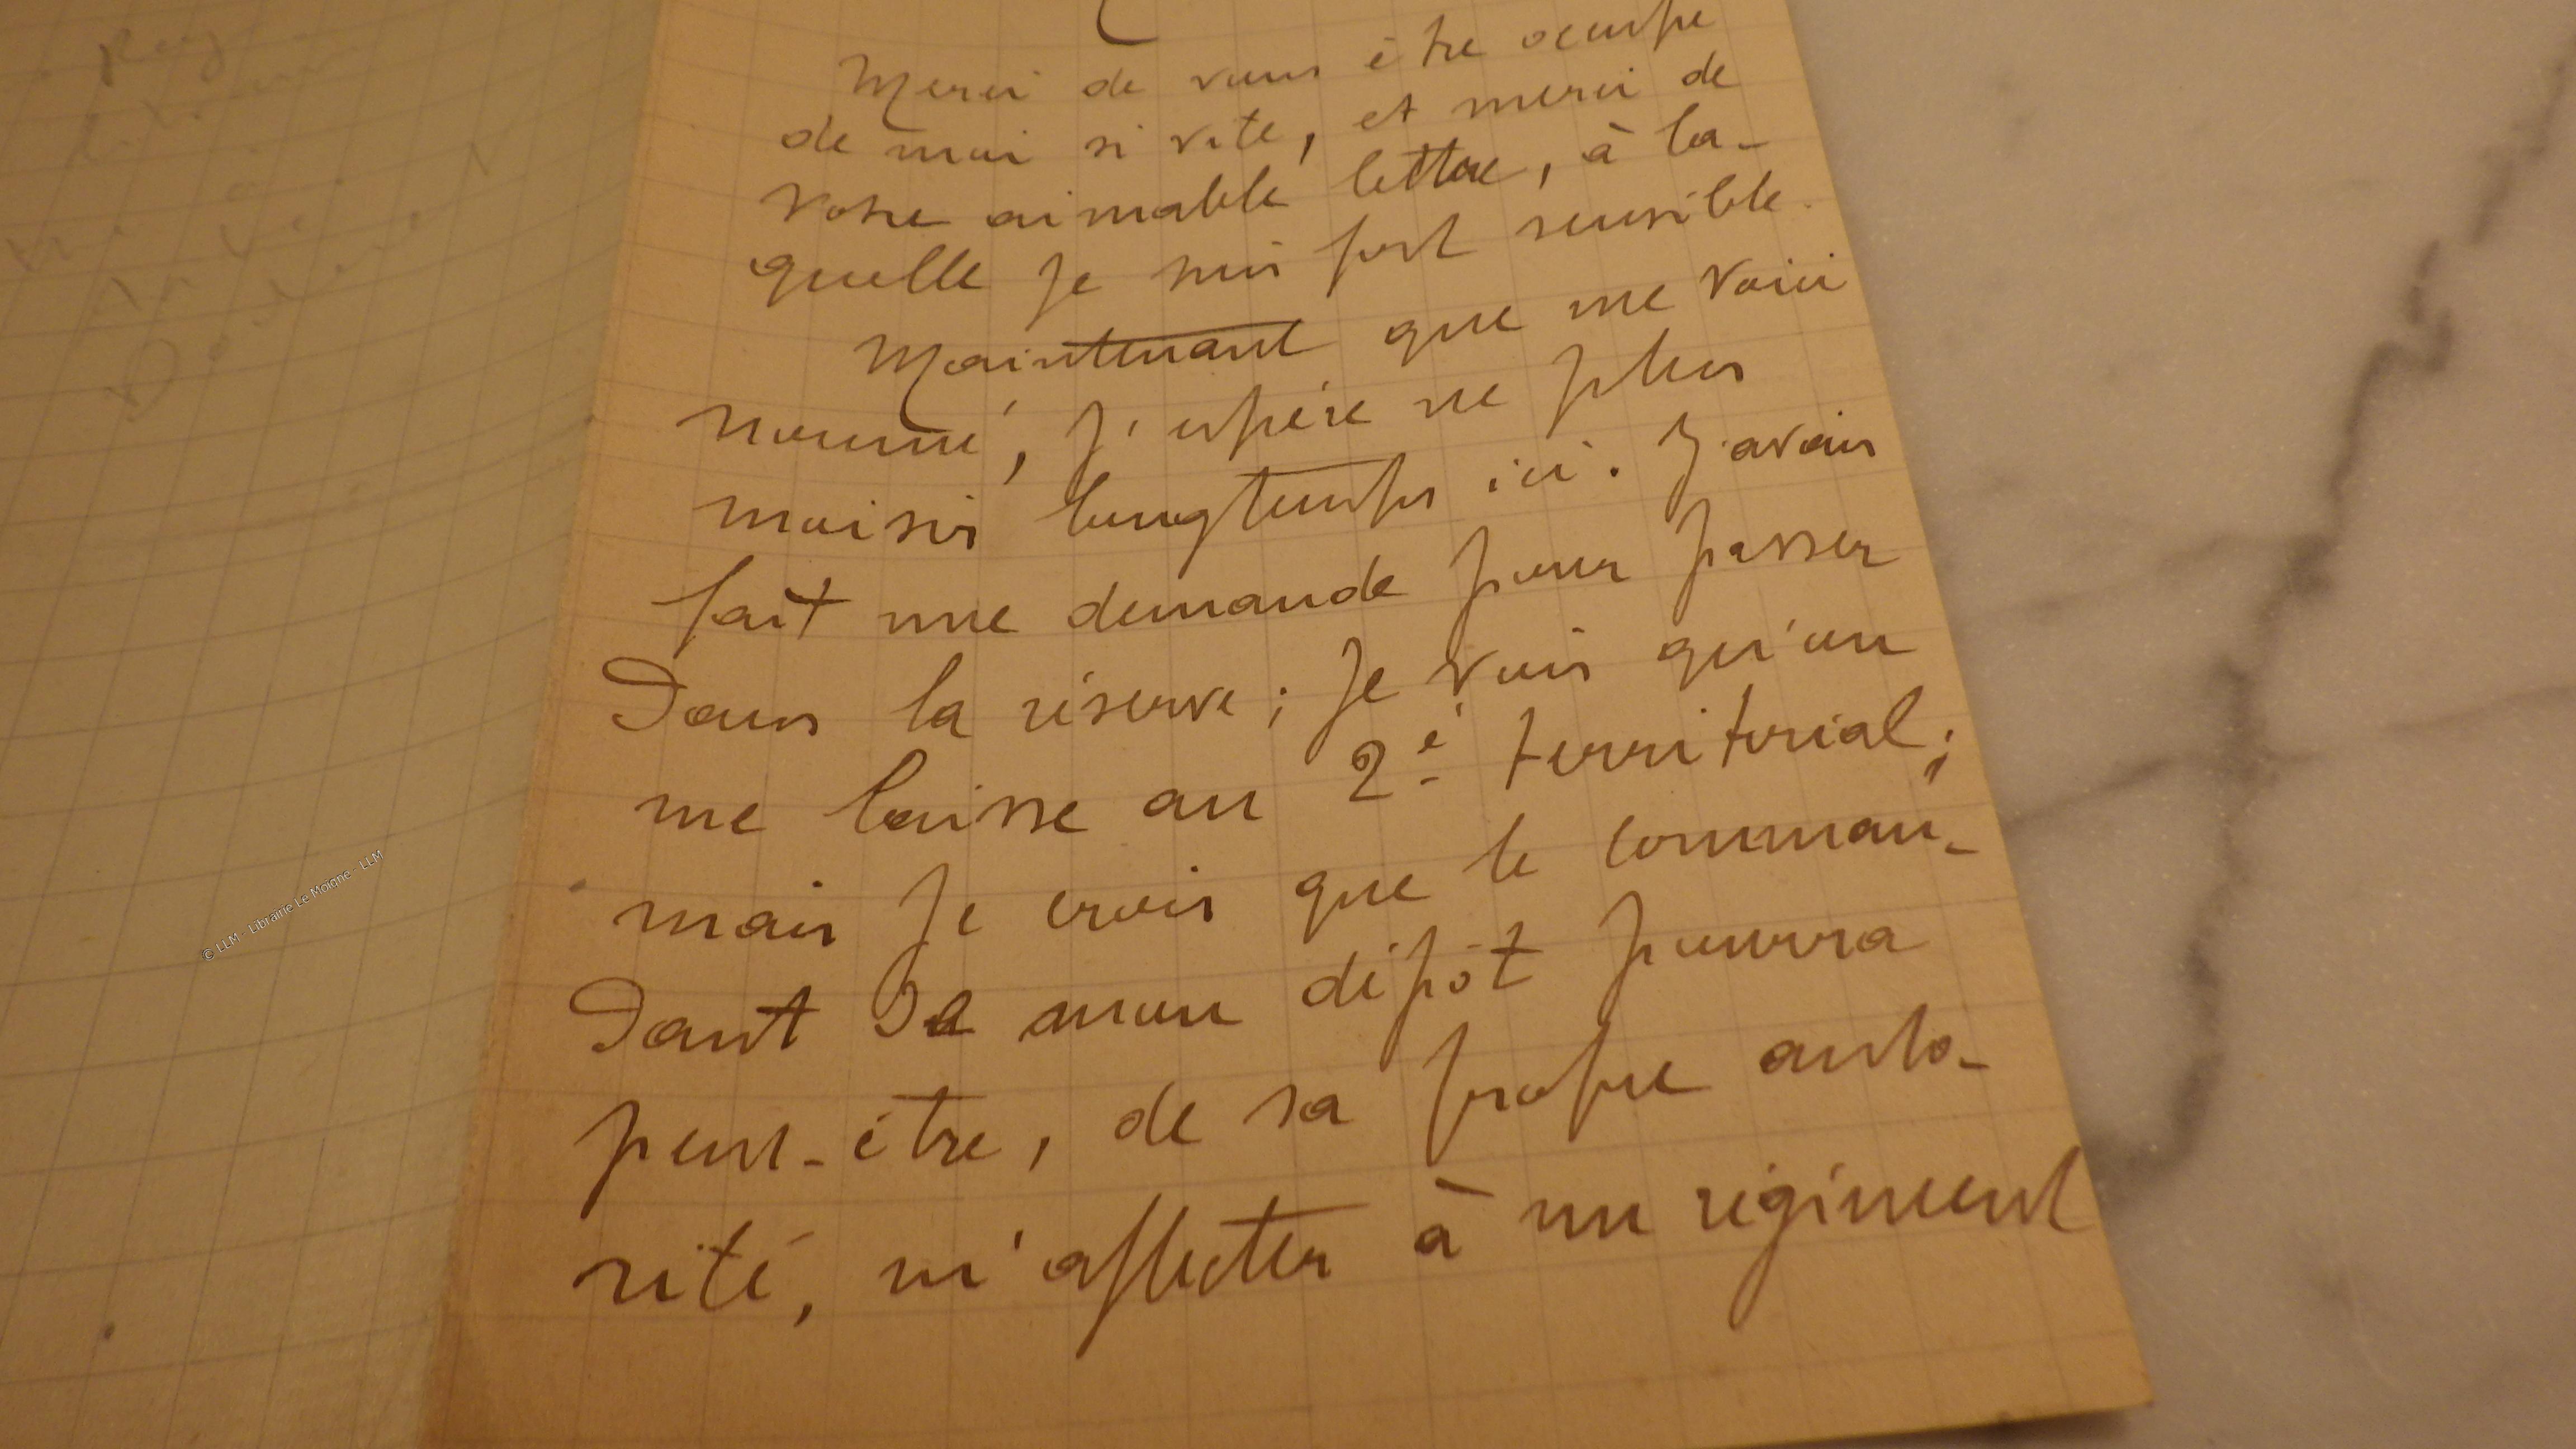 Merci de vous être occupé
de moi si vite, et merci de
votre aimable lettre, à la-
quelle je suis fort sensible.
Maintenant que me voici
nommé, j'espère ne plus
moisir longtemps ici. J'avais
fait une demande pour passer
Dans la réserve ; je vois qu'on
me laisse au 2è territorial ;
mais je crois que le comman-
Dant De mon dépôt pourra
peut-être, de sa propre auto-
rité, m'affecter à un régiment
© LLM - Librairie Le Moigne - LLM